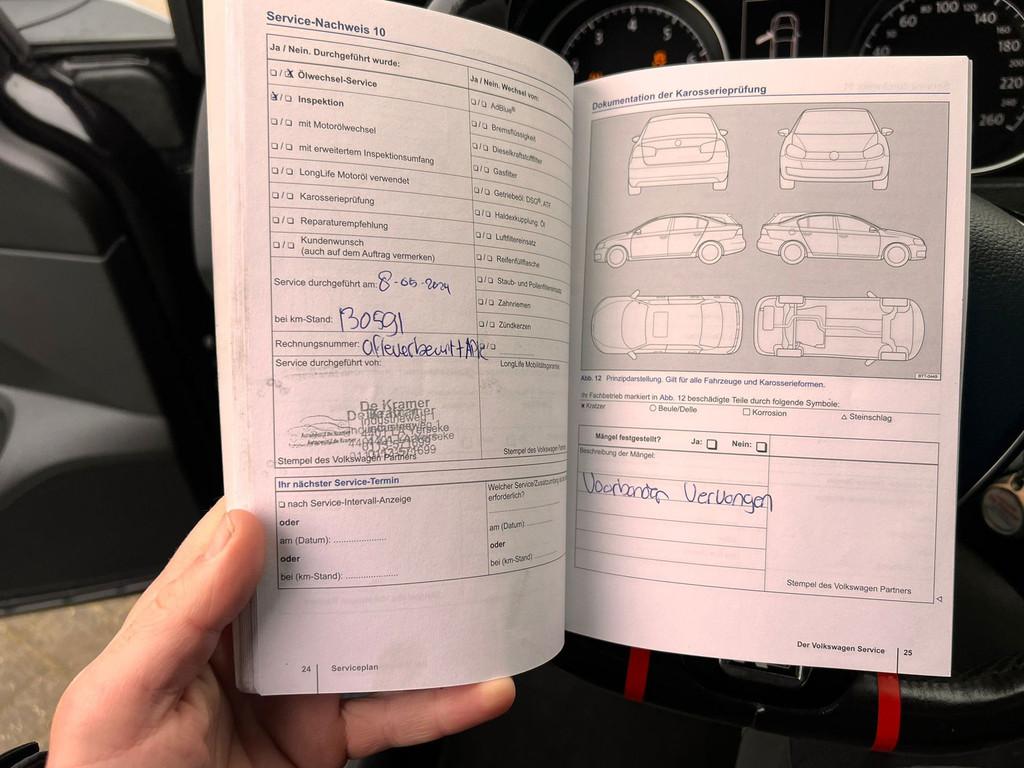 Service-Nachweis 10
Ja / Nein. Durchgeführt wurde:
Ölwechsel-Service
Inspektion
mit Motorölwechsel
mit erweitertem Inspektionsumfang
LongLife Motoröl verwendet
Karosserieprüfung
Reparaturempfehlung
Kundenwunsch
(auch auf dem Auftrag vermerken)
Service durchgeführt am: 8-05-2024
bei km-Stand: 130591
Rechnungsnummer: afleverbeurt + APK
Service durchgeführt von:
De Kramer
Stempel des Volkswagen Partners
Ja / Nein. Wechsel von:
AdBlue®
Bremsflüssigkeit
Dieselkraftstofffilter
Gasfilter
Getriebeöl: DSG®, ATF
Haldexkupplung: Öl
Luftfiltereinsatz
Reifenfüllflasche
Staub- und Pollenfiltereinsatz
Zahnriemen
Zündkerzen
LongLife Mobilitätsgarantie
Stempel des Volkswagen Partners
Ihr nächster Service-Termin
nach Service-Intervall-Anzeige
oder
am (Datum):
oder
bei (km-Stand):
Welcher Service/Zusatzumfang ist
erforderlich?
am (Datum):
oder
bei (km-Stand):
24 | Serviceplan
Dokumentation der Karosserieprüfung
BTT-0449
Abb. 12 Prinzipdarstellung. Gilt für alle Fahrzeuge und Karosserieformen.
Ihr Fachbetrieb markiert in Abb. 12 beschädigte Teile durch folgende Symbole:
× Kratzer ○ Beule/Delle □ Korrosion △ Steinschlag
Mängel festgestellt? Ja: □ Nein: □
Beschreibung der Mängel:
Voorbanden Vervangen
Stempel des Volkswagen Partners
Der Volkswagen Service | 25
3 4 5 6
40 60 80 100 120 140 180 200 220 260